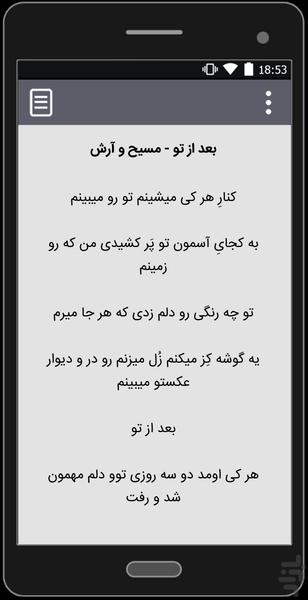 18:53
بعد از تو - مسیح و آرش
کنارِ هر کی میشینم تو رو میبینم
به کجایِ آسمون تو پَر کشیدی من که رو
زمینم
تو چه رنگی رو دلم زدی که هر جا میرم
یه گوشه کِز میکنم زُل میزنم رو در و دیوار
عکستو میبینم
بعد از تو
هر کی اومد دو سه روزی توو دلم مهمون
شد و رفت
بازار